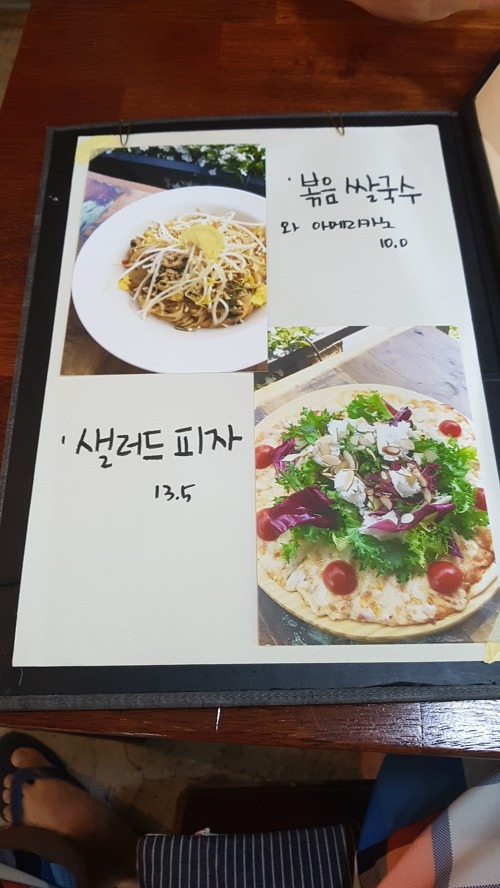 '볶음 쌀국수
와 아메리카노
10.0
'샐러드 피자
13.5